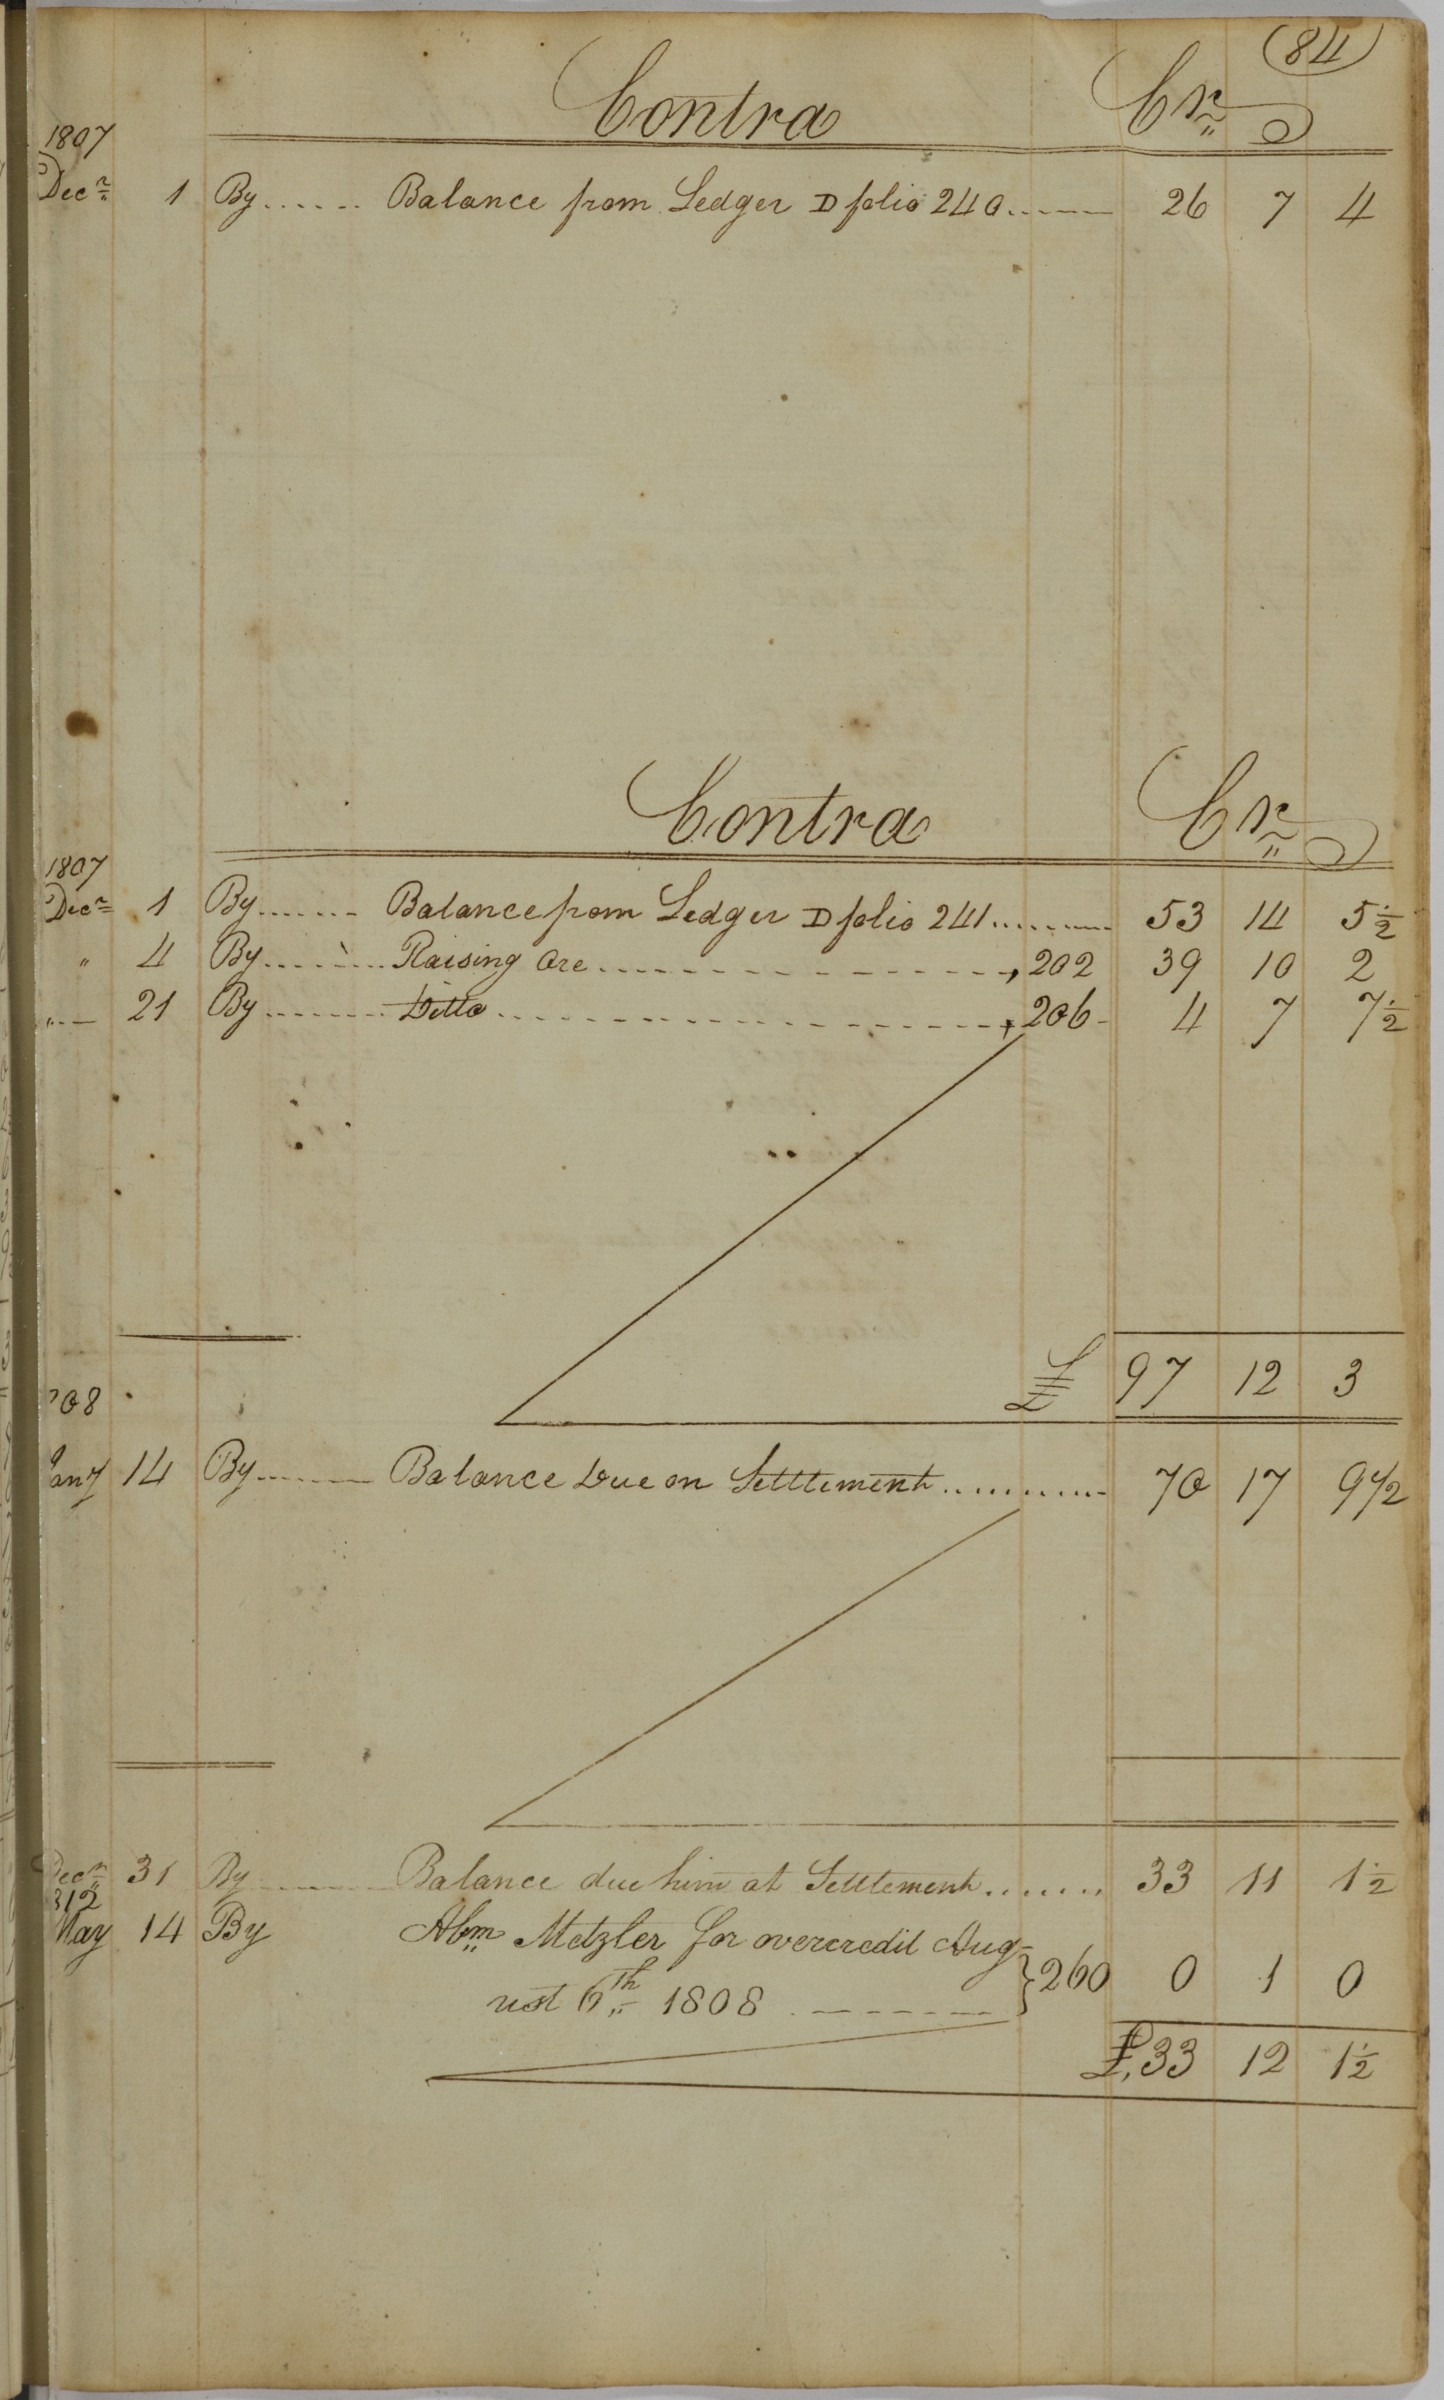 (84)
Contra Cr
1807
Decr 1 By...... Balance from Ledger D folio 240....... 26 7 4
Contra Cr
1807
Decr 1 By....... Balance from Ledger D folio 241.......... 53 14 5½
" 4 By....... Raising Ore.................., 202 39 10 2
" 21 By........ Ditto....................., 206 4 7 7½
£ 97 12 3
'08
Jany 14 By........ Balance Due on Setttement............ 70 17 9½
Decr 31 By Balance due him at Setttement....... 33 11 1½
812
May 14 By Abm Metzler for overcredit Aug-
ust 6th 1808 ------- } 260 0 1 0
£33 12 1½